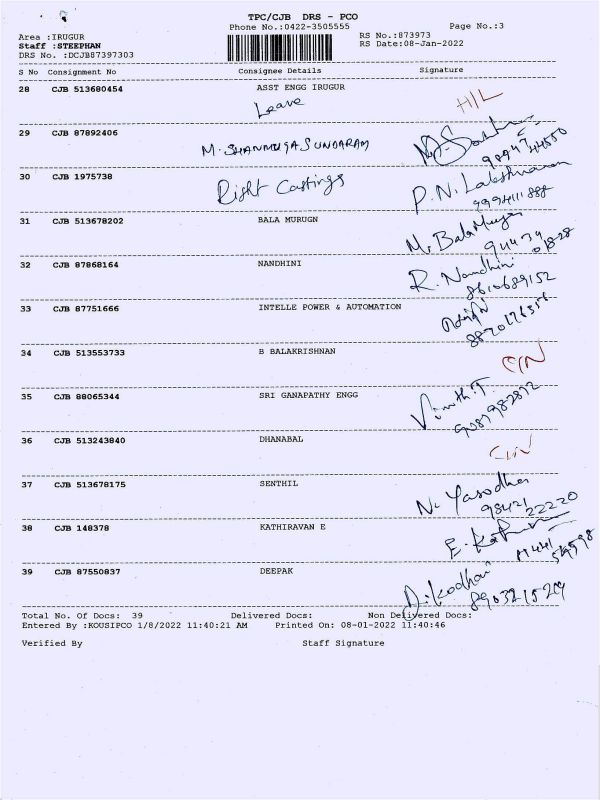 TPC/CJB DRS - PCO
Phone No.:0422-3505555 Page No.:3
Area :IRUGUR RS No.:873973
Staff :STEEPHAN RS Date:08-Jan-2022
DRS No. :DCJB87397303
S No Consignment No Consignee Details Signature
28 CJB 513680454 ASST ENGG IRUGUR
Leave H/L
29 CJB 87892406
M. SHANMUGA SUNDARAM
30 CJB 1975738 Right Castings P.N. Lakshmanan
31 CJB 513678202 BALA MURUGN
M. Bala Murugan
32 CJB 87868164 NANDHINI R. Nandhini
8610689152
33 CJB 87751666 INTELLE POWER & AUTOMATION
34 CJB 513553733 B BALAKRISHNAN
35 CJB 88065344 SRI GANAPATHY ENGG
Vinoth.T
36 CJB 513243840 DHANABAL
37 CJB 513678175 SENTHIL
N. Yasodha
98421 22220
38 CJB 148378 KATHIRAVAN E
39 CJB 87550837 DEEPAK
Total No. Of Docs: 39 Delivered Docs: Non Delivered Docs:
Entered By :KOUSIPCO 1/8/2022 11:40:21 AM Printed On: 08-01-2022 11:40:46
Verified By Staff Signature